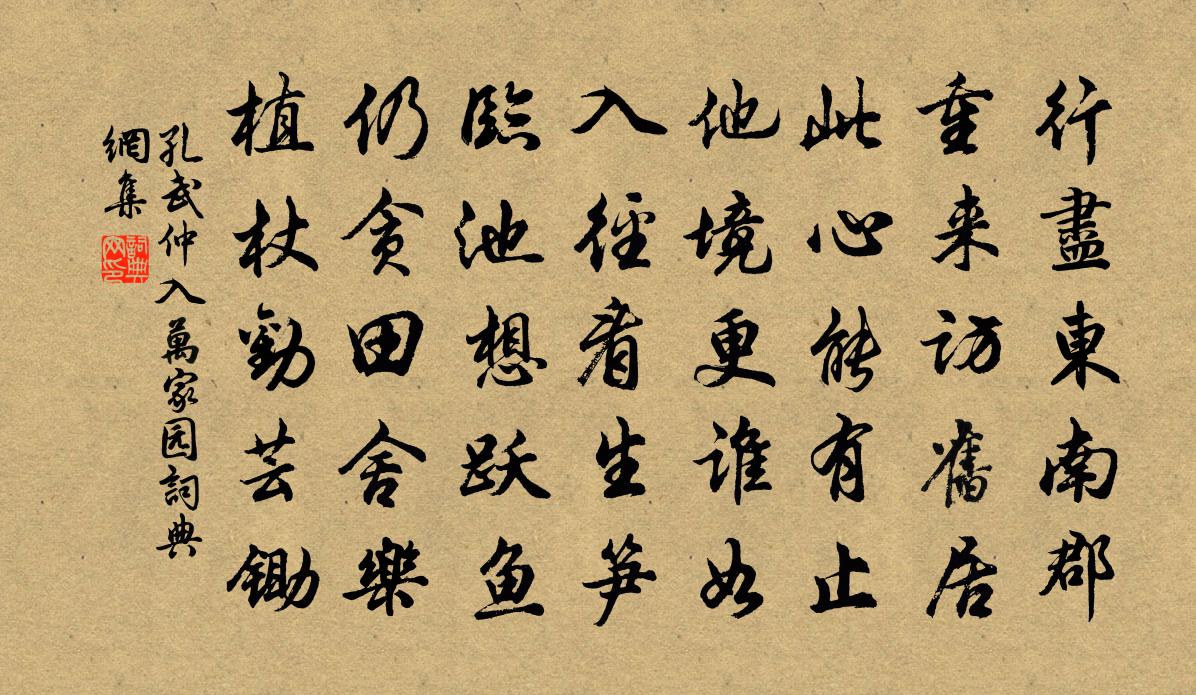 行盡東南郡
重来访舊居
此心能有止
他境更誰如
入徑看生笋
臨池想跃鱼
仍贪田舍樂
植杖勸芸鋤
孔武仲入萬家园詞典
網集
詞典
网印